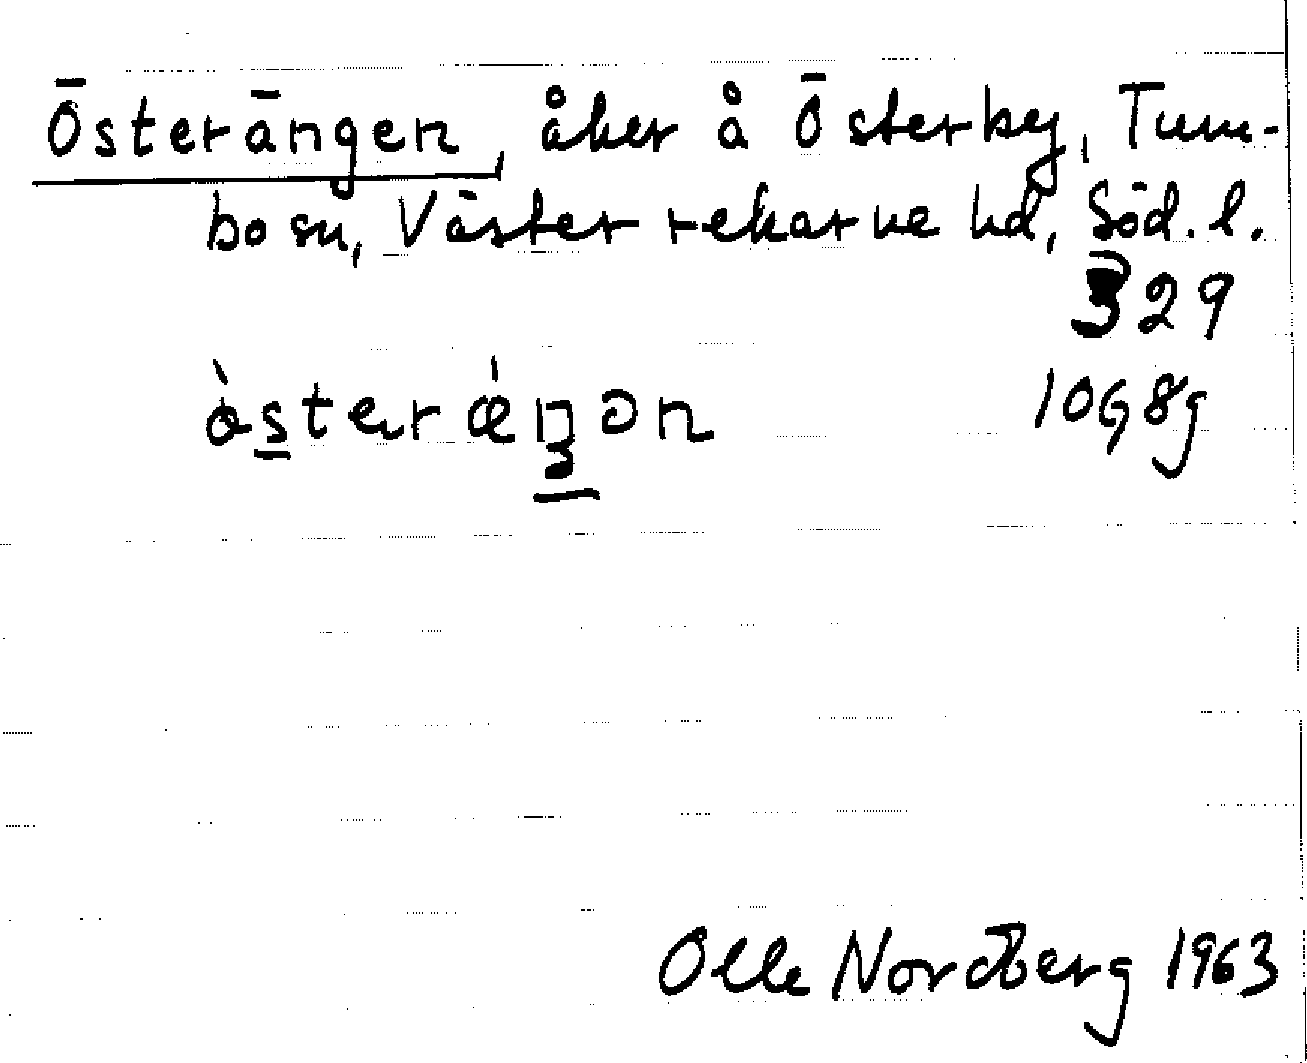 Österängen, åker å Österby, Tum-
bo sn, Västerrekarne hd, Söd. l.
329
10G8g
Olle Nordberg 1963